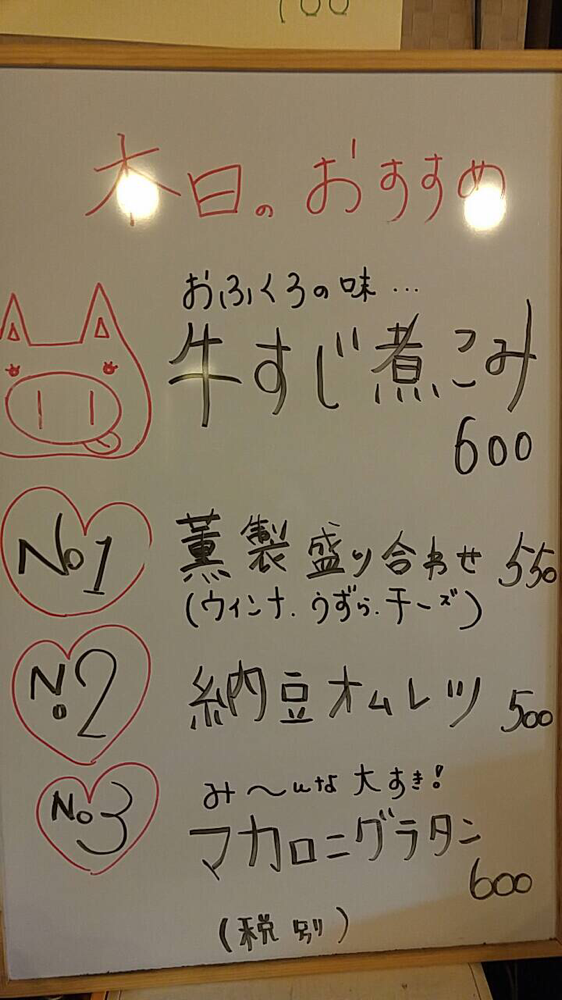 本日のおすすめ
おふくろの味…
牛すじ煮こみ
600
No1
薫製盛り合わせ 550
(ウィンナ.うずら.チーズ)
No2
納豆オムレツ 500
み〜んな大すき!
No3
マカロニグラタン
600
(税別)